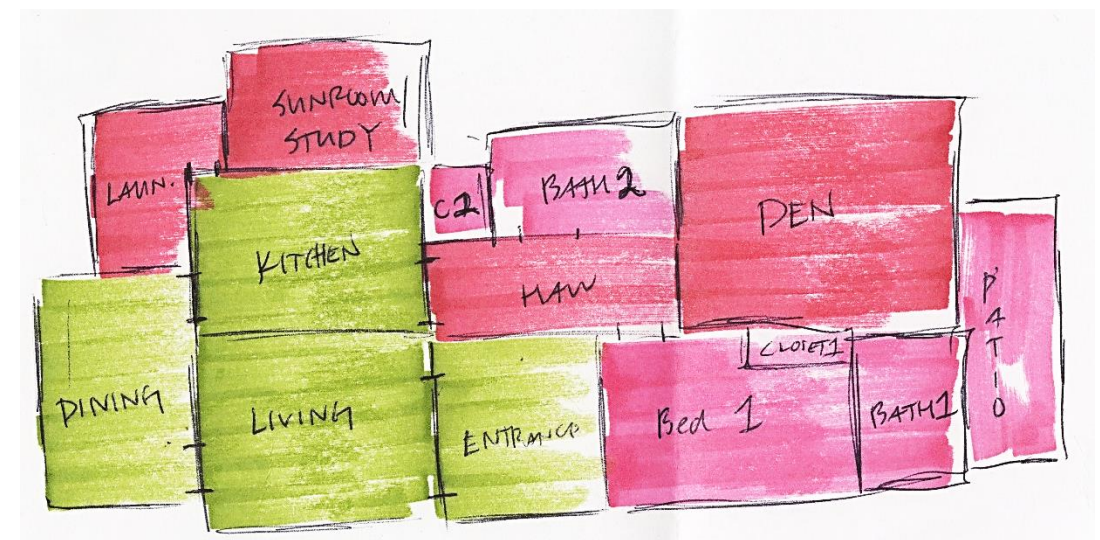 SUNROOM
STUDY
LAUN.
C2
BATH 2
DEN
KITCHEN
HALL
PATIO
CLOSET1
DINING
LIVING
ENTRANCE
Bed 1
BATH1